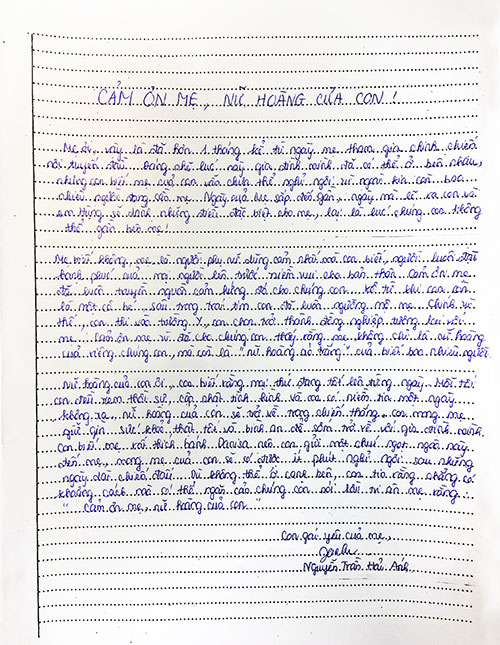 CẢM ƠN MẸ, NỮ HOÀNG CỦA CON!
Mẹ ơi, vậy là đã hơn 1 tháng kể từ ngày mẹ tham gia chinh chiến
nơi tuyến đầu. Đáng nhẽ lúc này gia đình mình đã có thể ở bên nhau,
nhưng con biết mẹ của con vẫn chưa thể nghỉ ngơi vì ngoài kia còn bao
nhiêu người đang cần mẹ. Ngày của Mẹ sắp đến gần, ngày mà lẽ ra con và
em Hưng sẽ dành những điều đặc biệt cho mẹ, lại là lúc chúng con không
thể gần bên mẹ!
Mẹ biết không, mẹ là người phụ nữ dũng cảm nhất mà con biết, người luôn đặt
hạnh phúc của mọi người lên trước niềm vui cho bản thân. Cảm ơn mẹ
đã luôn truyền nguồn cảm hứng đó cho chúng con. Kể từ khi con còn
là một cô bé, sâu trong trái tim con đã luôn ngưỡng mộ mẹ. Chính vì
thế, con thi vào trường Y, con chọn trở thành đồng nghiệp tương lai với
mẹ. Cảm ơn mẹ vì đã cho chúng con thấy rằng mẹ không chỉ là nữ hoàng
của riêng chúng con, mà còn là "nữ hoàng áo trắng" của biết bao nhiêu người.
Nữ hoàng của con ơi, con biết rằng mọi thứ đang tốt lên từng ngày. Mỗi tối
con đều xem thời sự, cập nhật tình hình và mẹ có niềm tin một ngày
không xa, nữ hoàng của con sẽ trở về trong chiến thắng. Con mong mẹ
giữ gìn sức khoẻ thật tốt và bình an để sớm trở về với gia đình mình.
Con biết mẹ rất thích bánh Danisa nên con gửi một chút ngọt ngào này
đến mẹ, mong mẹ của con sẽ có được ít phút nghỉ ngơi sau những
ngày dài chiến đấu. Dù không thể ở cạnh bên, con tin rằng chẳng có
khoảng cách nào có thể ngăn cản chúng con nói lời tri ân mẹ rằng:
"Cảm ơn mẹ, nữ hoàng của con."
Con gái yêu của mẹ,
Nguyễn Trần Hải Anh